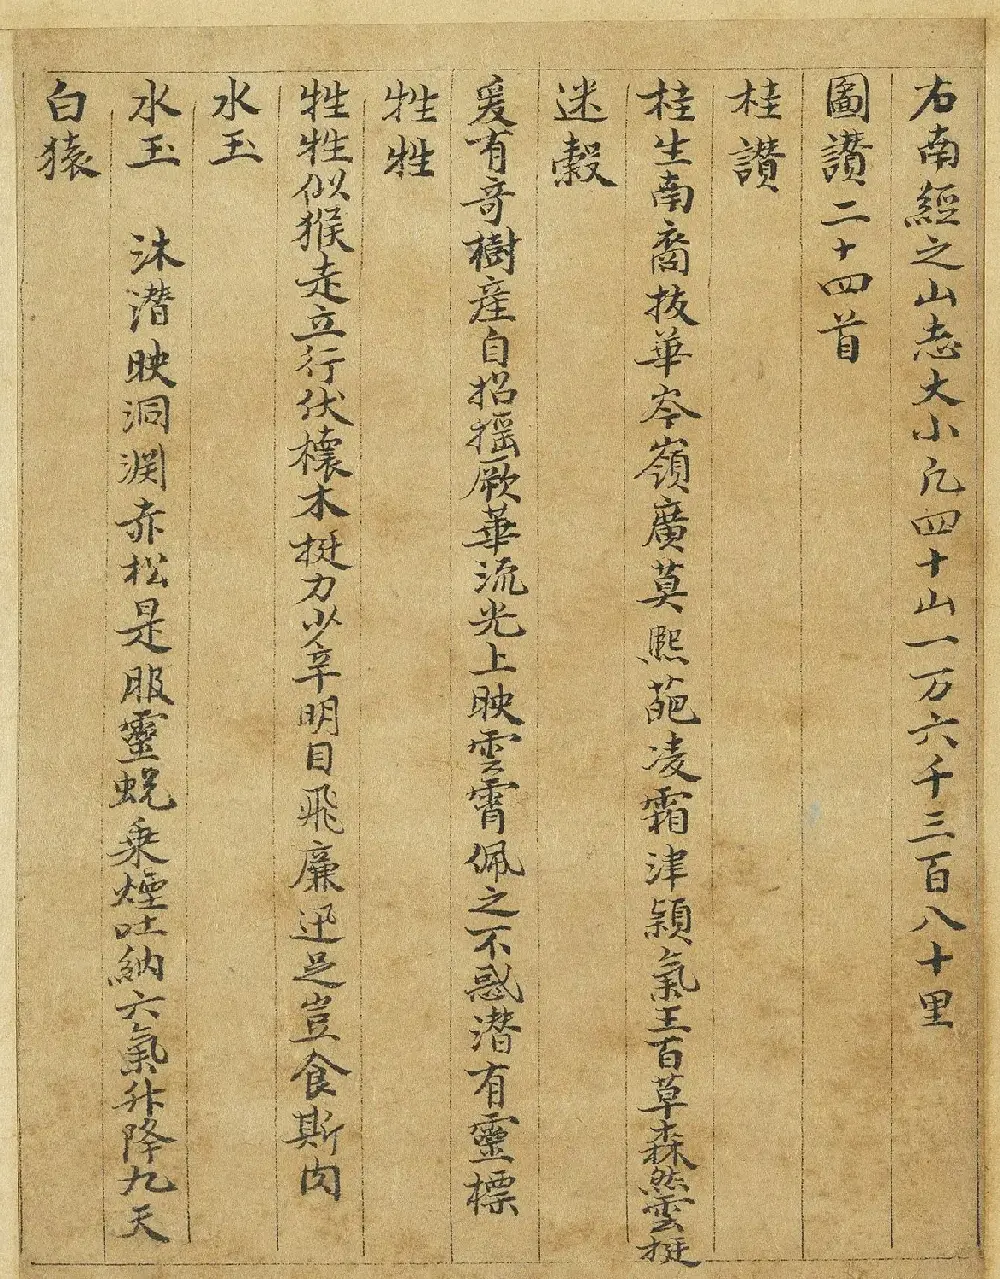 右南經之山志大小凡四十山一万六千三百八十里
圖讃二十四首
桂讃
桂生南裔拔華岑嶺廣莫熙葩凌霜津穎氣王百草森然雲挺
迷榖
爰有竒樹産自招摇厥華流光上映雲霄佩之不惑潜有靈摽
牲牲
牲牲似猴走立行伏櫰木挺力少辛明目飛廉迅足豈食斯肉
水玉
水玉 沐潜映洞渊赤松是服靈蜕乗煙吐納六氣升降九天
白猿